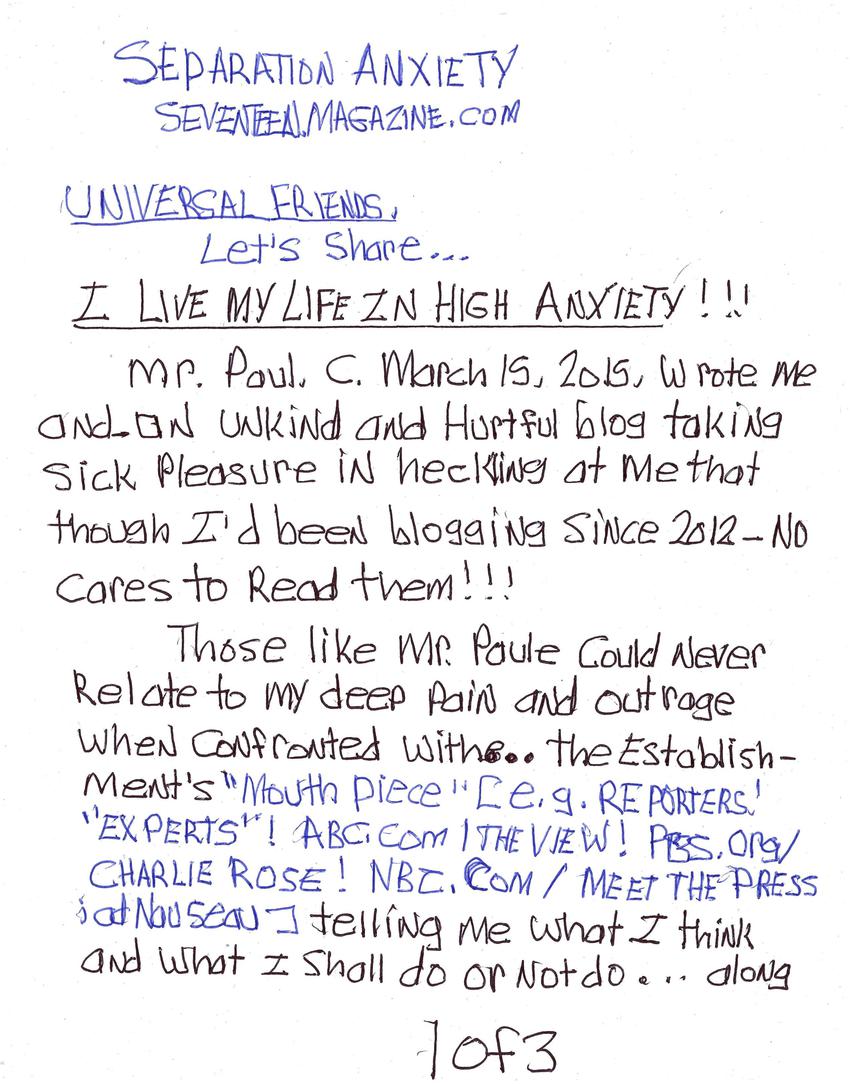 SEPARATION ANXIETY
SEVENTEEN.MAGAZINE.COM
UNIVERSAL FRIENDS,
Let's Share...
I LIVE MY LIFE IN HIGH ANXIETY!!!
Mr. Paul. C. March 15, 2015, Wrote me
and-an UNKiNd and Hurtful blog taking
Sick Pleasure iN heckling at Me that
though I'd been blogging Since 2012-No
Cares to Read them!!!
Those like Mr. Paule Could Never
Relate to my deep Pain and outrage
when Confronted with... the Establish-
Ment's "Mouth piece" [e.g. REPORTERS!
"EXPERTS"! ABC.Com/THE VIEW! PBS.Org/
CHARLIE ROSE! NBC.Com/MEET THE PRESS
;ad Nauseau] telling me what I think
and what I Shall do or Not do... along
1 of 3